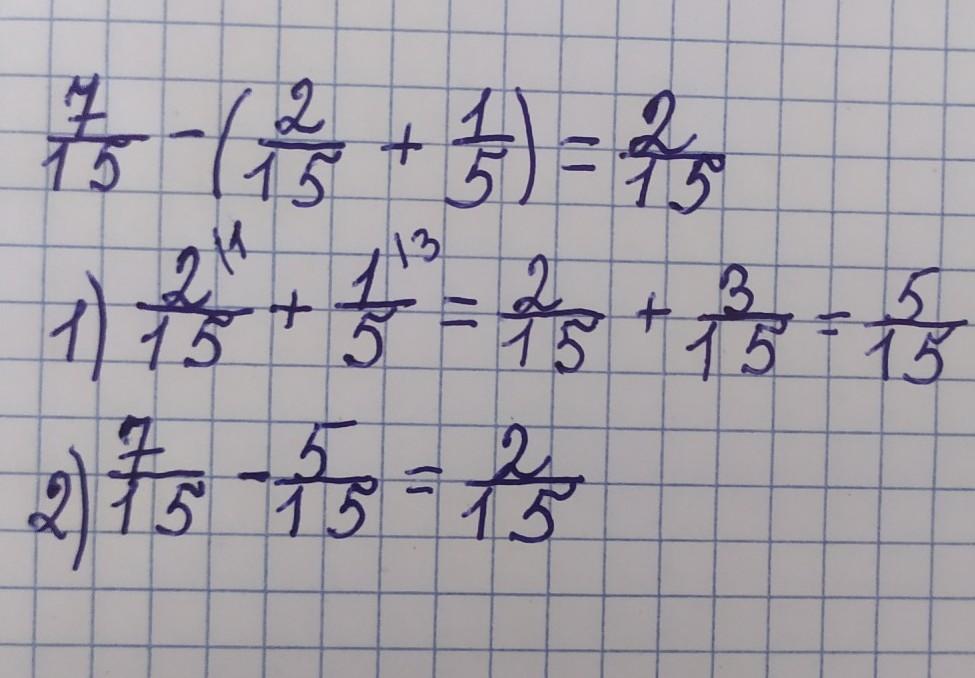 7/15 - (2/15 + 1/5) = 2/15
1) 2/15 \1 + 1/5 \3 = 2/15 + 3/15 = 5/15
2) 7/15 - 5/15 = 2/15